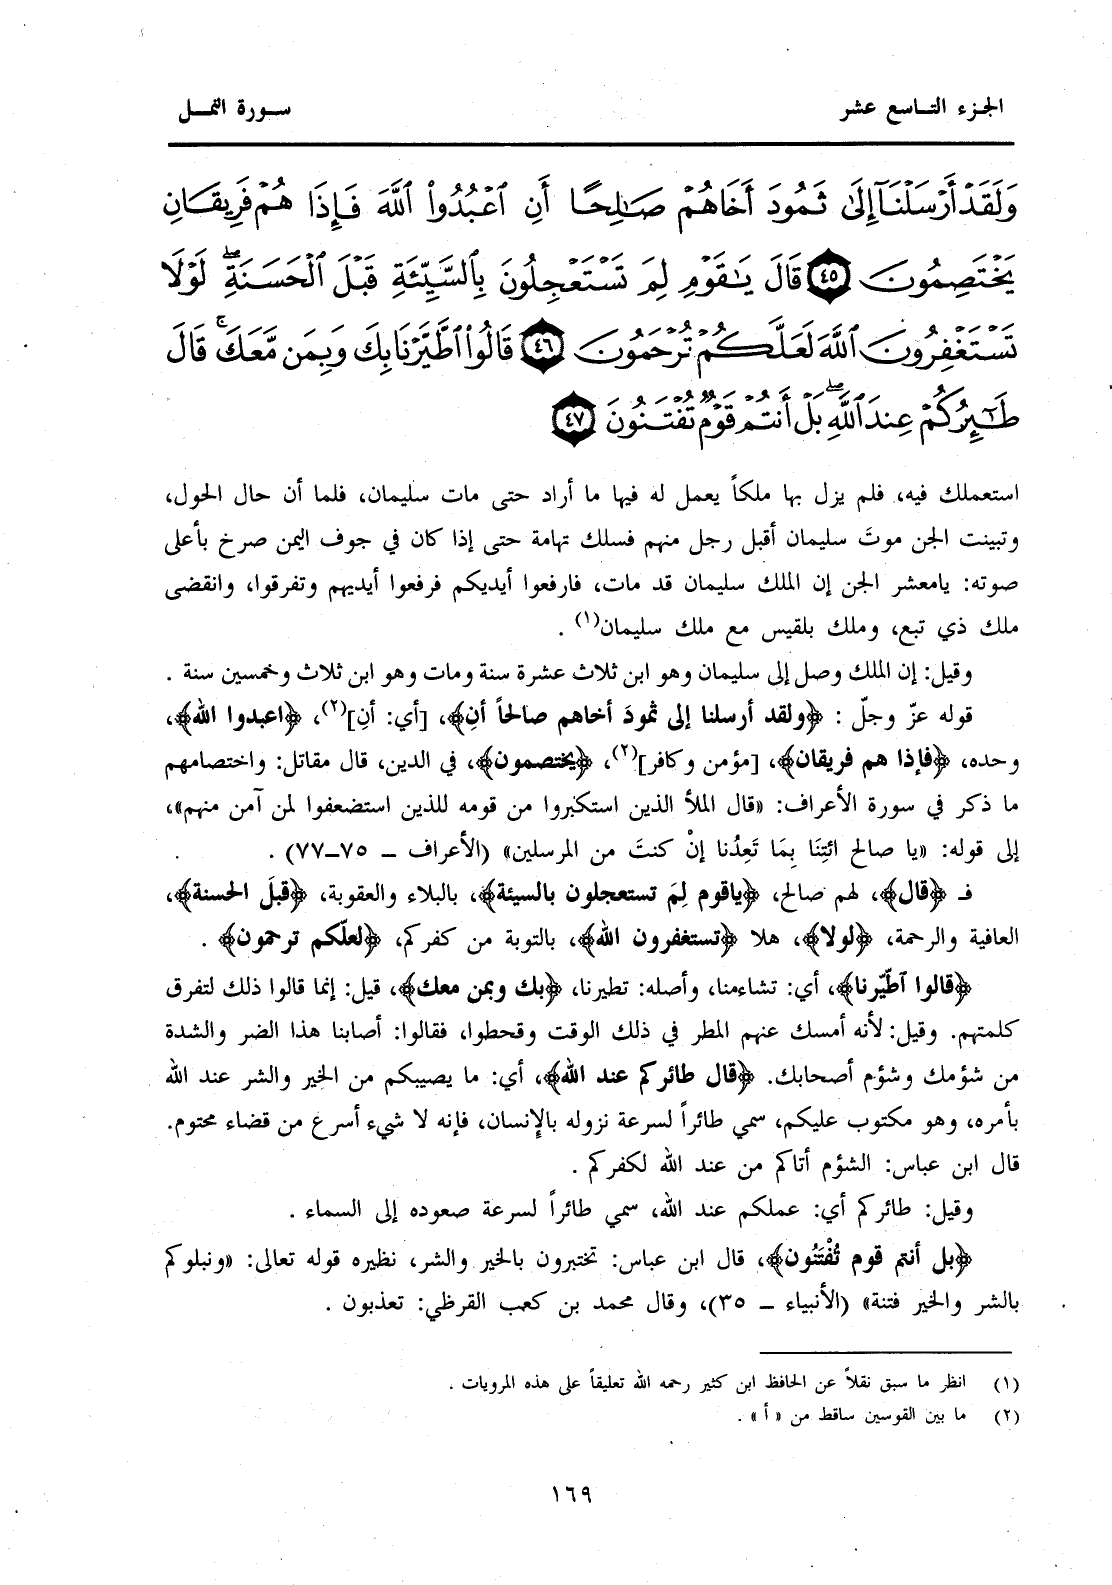 الجزء التاسع عشر
سورة النمل
وَلَقَدْ أَرْسَلْنَآ إِلَىٰ ثَمُودَ أَخَاهُمْ صَٰلِحًا أَنِ ٱعْبُدُوا۟ ٱللَّهَ فَإِذَا هُمْ فَرِيقَانِ
يَخْتَصِمُونَ ﴿٤٥﴾ قَالَ يَٰقَوْمِ لِمَ تَسْتَعْجِلُونَ بِٱلسَّيِّئَةِ قَبْلَ ٱلْحَسَنَةِ ۖ لَوْلَا
تَسْتَغْفِرُونَ ٱللَّهَ لَعَلَّكُمْ تُرْحَمُونَ ﴿٤٦﴾ قَالُوا۟ ٱطَّيَّرْنَا بِكَ وَبِمَن مَّعَكَ ۚ قَالَ
طَٰٓئِرُكُمْ عِندَ ٱللَّهِ ۖ بَلْ أَنتُمْ قَوْمٌ تُفْتَنُونَ ﴿٤٧﴾
استعملك فيه، فلم يزل بها ملكاً يعمل له فيها ما أراد حتى مات سليمان، فلما أن حال الحول،
وتبينت الجن موتَ سليمان أقبل رجل منهم فسلك تهامة حتى إذا كان في جوف اليمن صرخ بأعلى
صوته: يامعشر الجن إن الملك سليمان قد مات، فارفعوا أيديكم فرفعوا أيديهم وتفرقوا، وانقضى
ملك ذي تبع، وملك بلقيس مع ملك سليمان(١) .
وقيل: إن الملك وصل إلى سليمان وهو ابن ثلاث عشرة سنة ومات وهو ابن ثلاث وخمسين سنة .
قوله عزّ وجلّ : ﴿ولقد أرسلنا إلى ثمودَ أخاهم صالحاً أن﴾، [أي: أنِ](٢)، ﴿اعبدوا الله﴾،
وحده، ﴿فإذا هم فريقان﴾، [مؤمن وكافر](٢)، ﴿يختصمون﴾، في الدين، قال مقاتل: واختصامهم
ما ذكر في سورة الأعراف: «قال الملأ الذين استكبروا من قومه للذين استضعفوا لمن آمن منهم»،
إلى قوله: «يا صالح ائتِنَا بِمَا تَعِدُنا إنْ كنتَ من المرسلين» (الأعراف ـ ٧٥ـ٧٧) .
فـ ﴿قال﴾، لهم صالح، ﴿ياقوم لِمَ تستعجلون بالسيئة﴾، بالبلاء والعقوبة، ﴿قبلَ الحسنة﴾،
العافية والرحمة، ﴿لولا﴾، هلا ﴿تستغفرون الله﴾، بالتوبة من كفركم، ﴿لعلّكم ترحمون﴾ .
﴿قالوا آطّيّرنا﴾، أي: تشاءمنا، وأصله: تطيرنا، ﴿بك وبمن معك﴾، قيل: إنما قالوا ذلك لتفرق
كلمتهم. وقيل: لأنه أمسك عنهم المطر في ذلك الوقت وقحطوا، فقالوا: أصابنا هذا الضر والشدة
من شؤمك وشؤم أصحابك. ﴿قال طائركم عند الله﴾، أي: ما يصيبكم من الخير والشر عند الله
بأمره، وهو مكتوب عليكم، سمي طائراً لسرعة نزوله بالإنسان، فإنه لا شيء أسرع من قضاء محتوم.
قال ابن عباس: الشؤم أتاكم من عند الله لكفركم .
وقيل: طائركم أي: عملكم عند الله، سمي طائراً لسرعة صعوده إلى السماء .
﴿بل أنتم قوم تُفْتَنُون﴾، قال ابن عباس: تختبرون بالخير والشر، نظيره قوله تعالى: «ونبلوكم
بالشر والخير فتنة» (الأنبياء ـ ٣٥)، وقال محمد بن كعب القرظي: تعذبون .
(١) انظر ما سبق نقلاً عن الحافظ ابن كثير رحمه الله تعليقاً على هذه المرويات .
(٢) ما بين القوسين ساقط من «أ» .
١٦٩